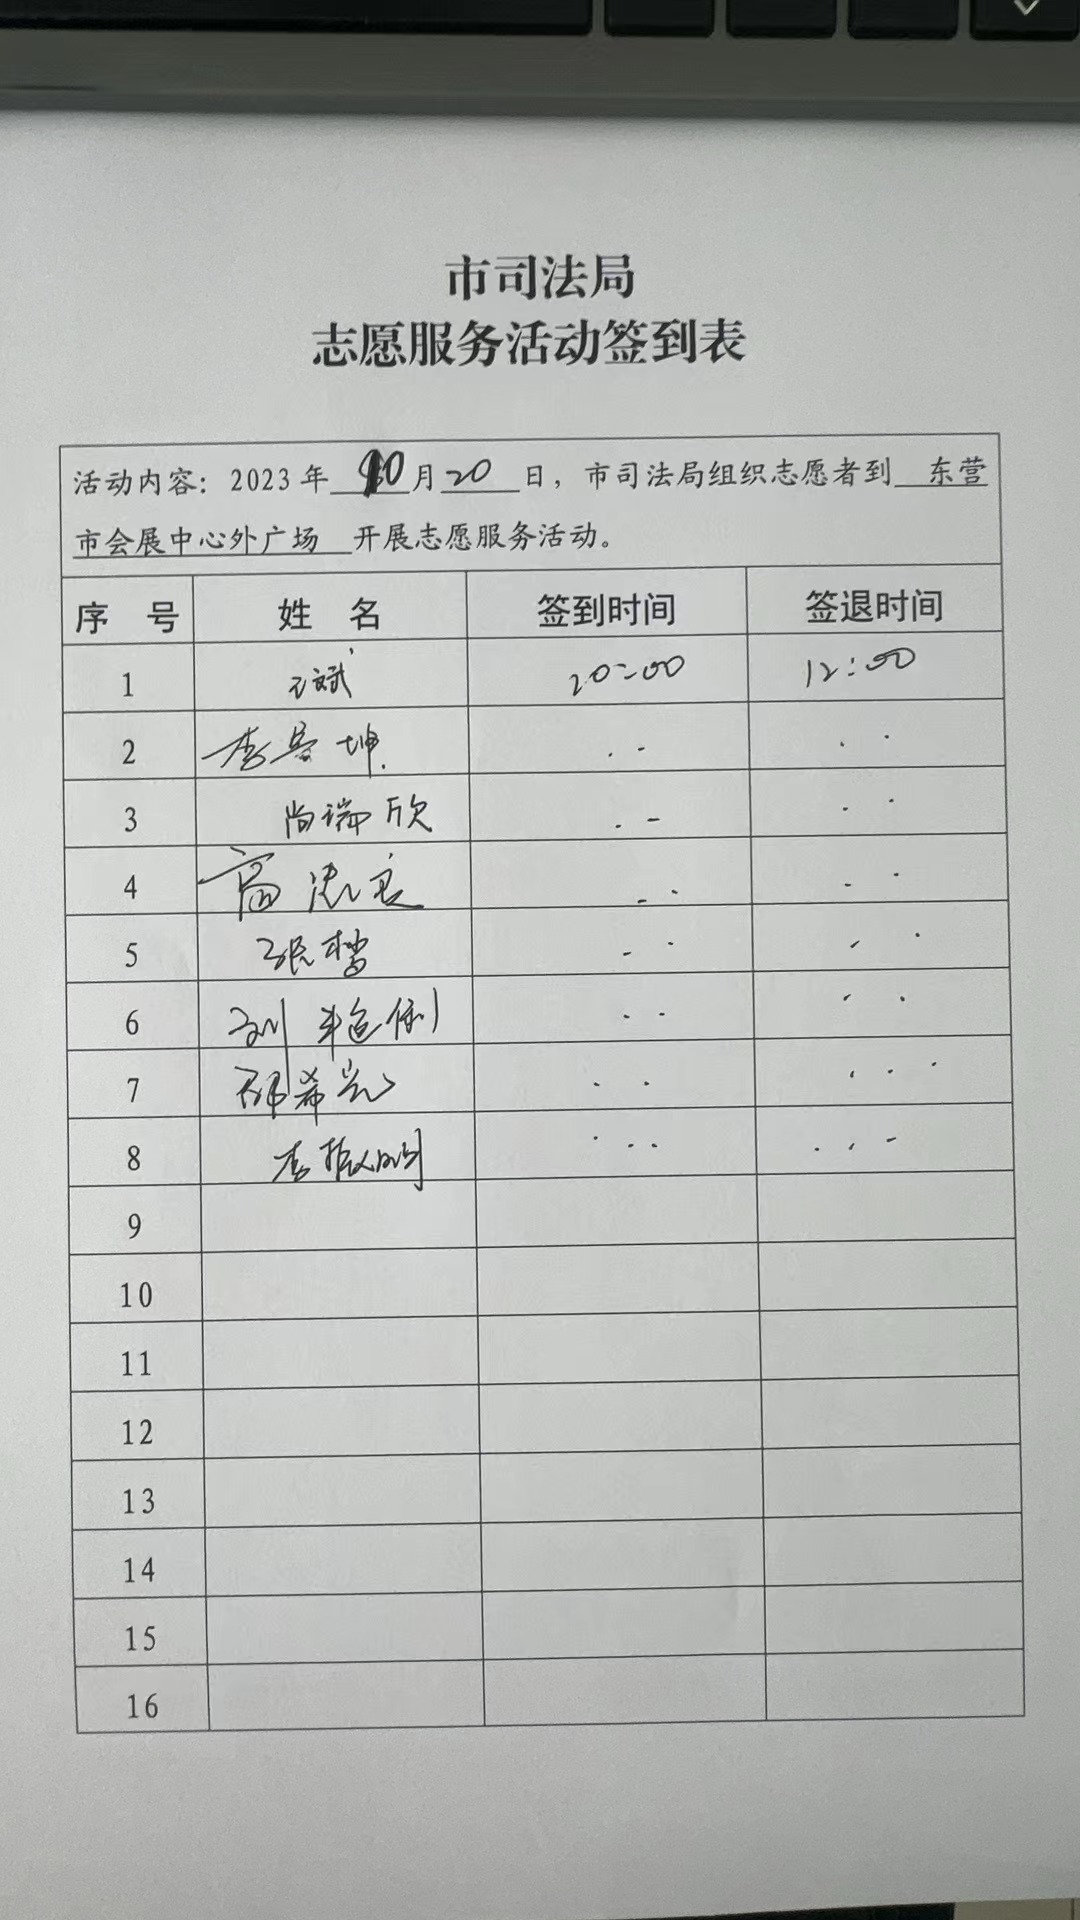 市司法局
志愿服务活动签到表
活动内容：2023年 10月20日，市司法局组织志愿者到 东营
市会展中心外广场 开展志愿服务活动。
序 号 姓 名 签到时间 签退时间
1 王斌 20:00 12:00
2 李景坤
3 尚瑞欣
4 高忠良
5 张楼
6 刘
7 邵希亮
8 李振明
9
10
11
12
13
14
15
16